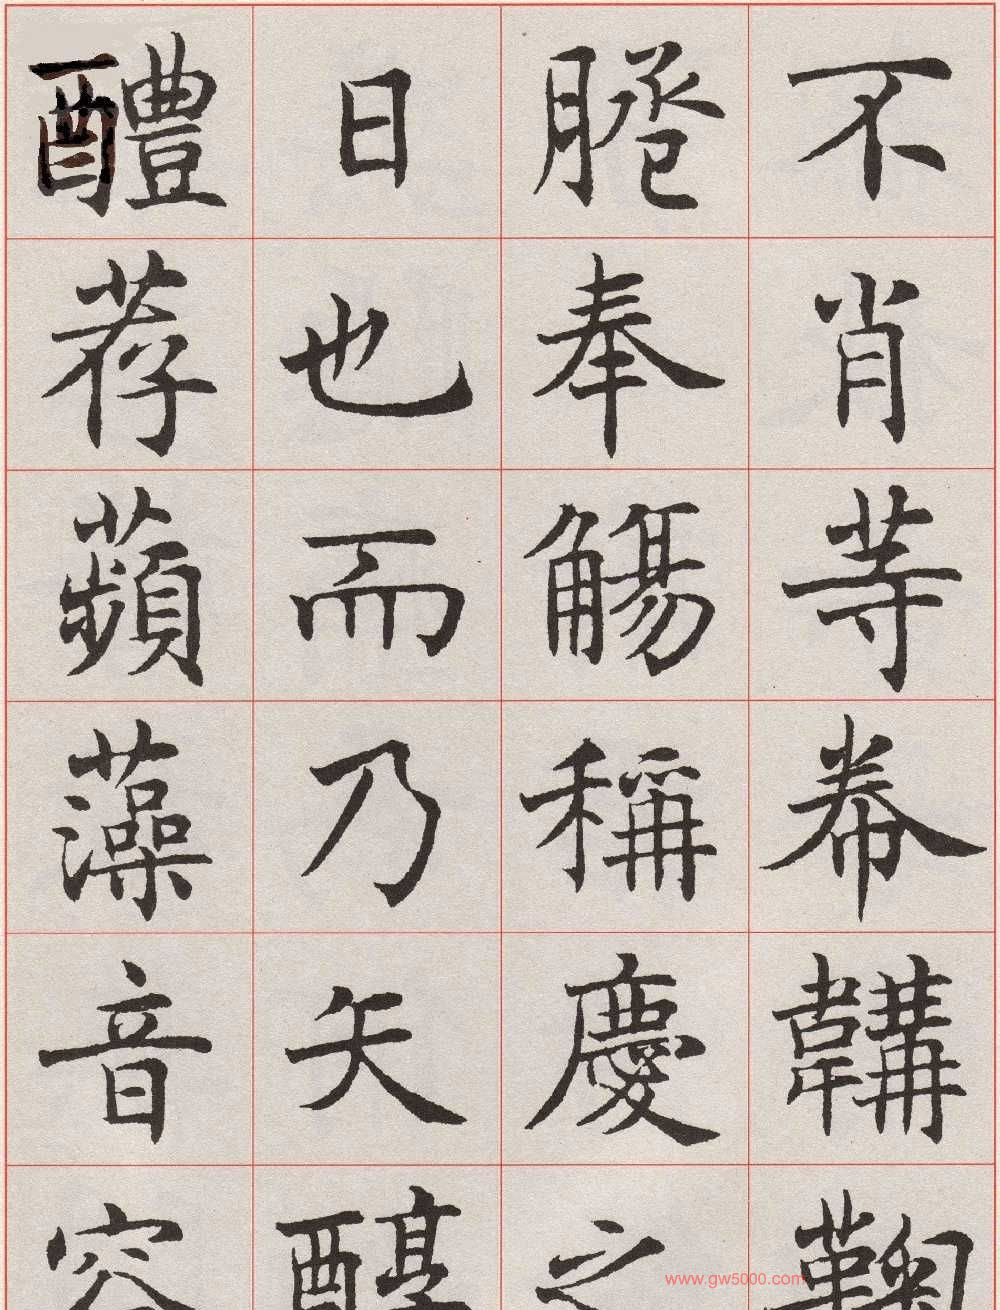 不肖等帣韝鞠
奉觴稱慶之
日也而乃矢醇
醴荐蘋藻音容
www.gw5000.com